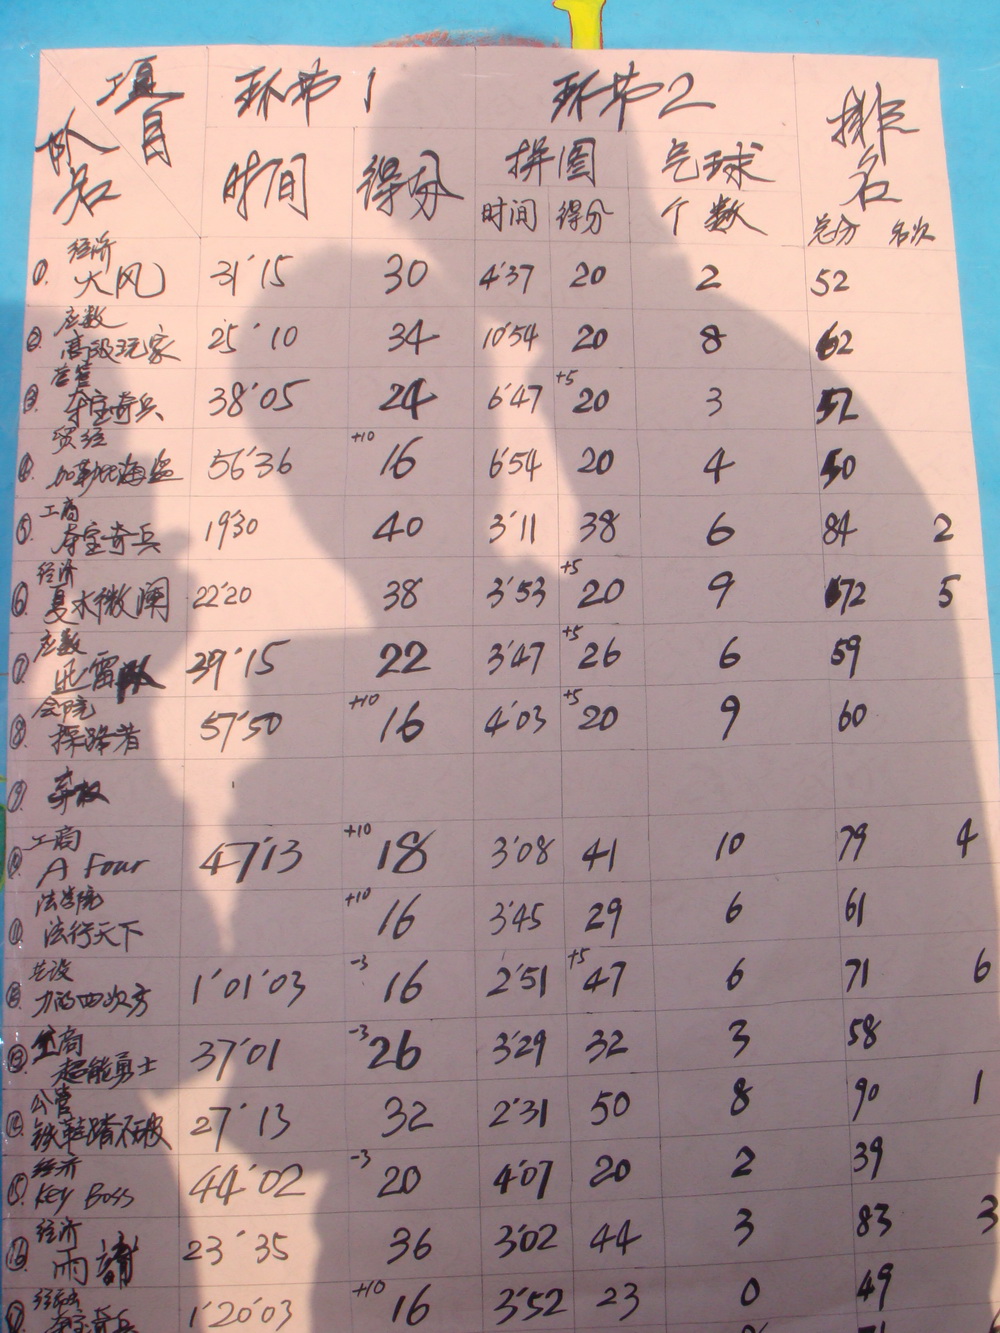 项目 环节1 环节2 排名
队名 时间 得分 拼图 气球
时间 得分 个数 总分 名次
① 经济
大风 31'15 30 4'37 20 2 52
② 应数
高级玩家 25'10 34 10'54 20 8 62
③ 营管
夺宝奇兵 38'05 24 6'47 +5 20 3 52
④ 贸经
加勒比海盗 56'36 +10 16 6'54 20 4 50
⑤ 工商
夺宝奇兵 19'30 40 3'11 38 6 84 2
⑥ 经济
夏木微澜 22'20 38 3'53 +5 20 9 72 5
⑦ 应数
迅雷队 39'15 22 3'47 +5 26 6 59
⑧ 会院
探路者 57'50 +10 16 4'03 +5 20 9 60
⑨ 弃权
⑩ 工商
A Four 47'13 +10 18 3'08 41 10 79 4
⑪ 法学院
法行天下 +10 16 3'45 29 6 61
⑫ 艺设
力的四次方 1'01'03 -3 16 2'51 +5 47 6 71 6
⑬ 工商
超能勇士 37'01 -3 26 3'29 32 3 58
⑭ 公管
铁鞋踏不破 27'13 32 2'31 50 8 90 1
⑮ 经济
Key Boss 44'02 -3 20 4'07 20 2 39
⑯ 经济
雨 23'35 36 3'02 44 3 83 3
⑰
夺宝奇兵 1'20'03 +10 16 3'52 23 0 49